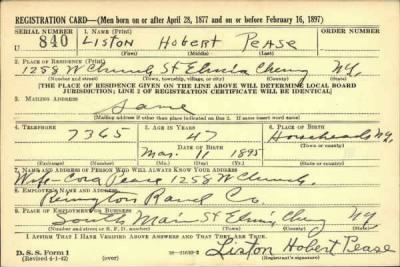 REGISTRATION CARD—(Men born on or after April 28, 1877 and on or before February 16, 1897)
SERIAL NUMBER 1. NAME (Print) ORDER NUMBER
U 840 LISTON HOBERT PEASE
(First) (Middle) (Last)
2. PLACE OF RESIDENCE (Print)
1258 W Church St Elmira Chemg N.Y.
(Number and street) (Town, township, village, or city) (County) (State)
[THE PLACE OF RESIDENCE GIVEN ON THE LINE ABOVE WILL DETERMINE LOCAL BOARD
JURISDICTION; LINE 2 OF REGISTRATION CERTIFICATE WILL BE IDENTICAL]
3. MAILING ADDRESS
Same
[Mailing address if other than place indicated on line 2. If same insert word same]
4. TELEPHONE 5. AGE IN YEARS 6. PLACE OF BIRTH
7365 47 Horseheads
DATE OF BIRTH (Town or county)
11 1895 N.Y.
(Exchange) (Number) (Mo.) (Day) (Yr.) (State or country)
7. NAME AND ADDRESS OF PERSON WHO WILL ALWAYS KNOW YOUR ADDRESS
Wife - Cora Pease 1258 W Church
8. EMPLOYER'S NAME AND ADDRESS
Remington Rand Co.
9. PLACE OF EMPLOYMENT OR BUSINESS
South Main St Elmira Chemg NY
(Number and street or R. F. D. number) (Town) (County) (State)
I AFFIRM THAT I HAVE VERIFIED ABOVE ANSWERS AND THAT THEY ARE TRUE.
D. S. S. Form 1
(Revised 4-1-42) Liston Hobert Pease